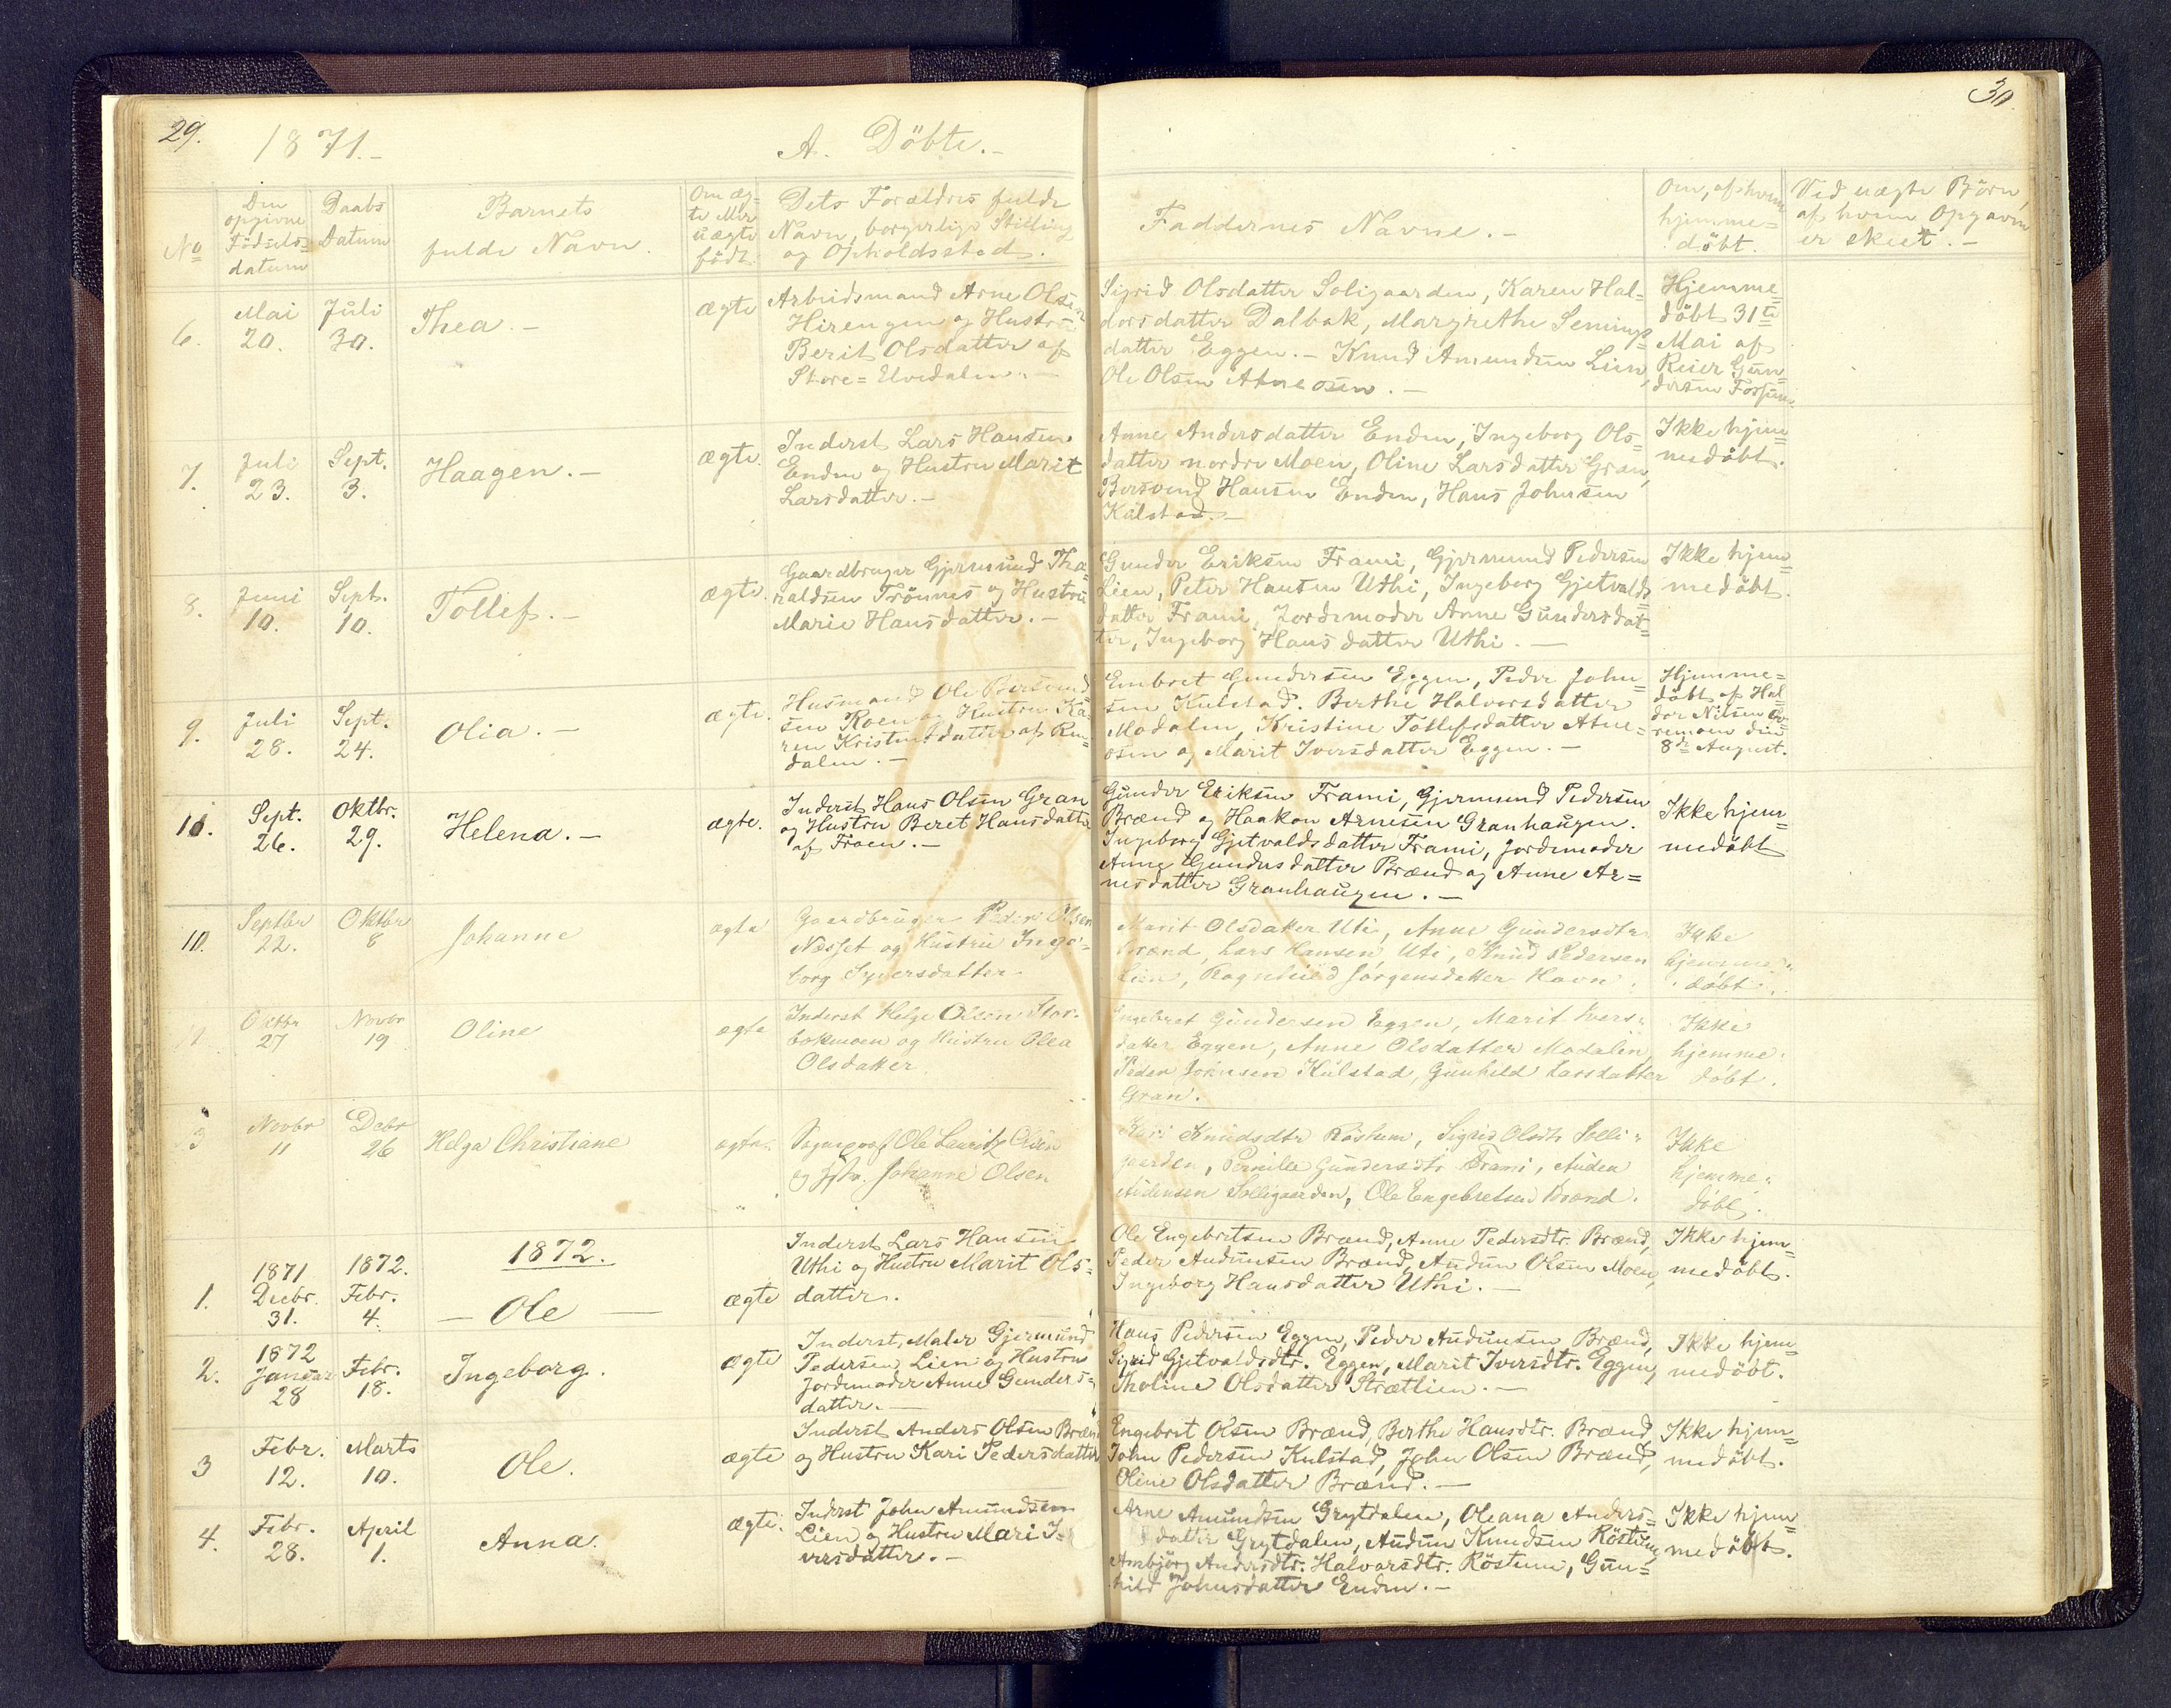 29.
1871.-
A. Döbte.-
30.
No
Den opgivne Födsels= datum
Daabs Datum
Barnets fulde Navn.
Om æg= te eller uægte födt.
Dets Forældres fulde Navn, borgerlige Stilling og Opholdssted.
Faddernes Navne.-
Om, af hvem hjemme= döbt.
Ved uægte Börn, af hvem Opgaven er skeet.-
6.
Mai 20.
Juli 30.
Thea.-
ægte
Arbeidsmand Arne Olsen
Hirengen og Hustru
Berit Olsdatter af
Store=Elvedalen.-
Sigrid Olsdatter Soligaarden, Karen Hal=
dorsdatter Dalbak, Margrethe Semings=
datter Eggen.- Knud Amundsen Lien,
Ole Olsen Atneosen.-
Hjemme=
döbt 31te
Mai af
Reier Gun=
dersen
7.
Juli 23.
Sept. 3.
Haagen.-
ægte.
Inderst Lars Hansen
Enden og Hustru Marit
Larsdatter.-
Anne Andersdatter Enden, Ingeborg Ols=
datter nordre Moen, Oline Larsdatter Gran,
Bersvend Hansen Enden, Hans Johnsen
Kulstad.-
Ikke hjem=
medöbt.
8.
Juni 10.
Sept. 10.
Tollef.-
ægte.
Gaardbruger Gjermund Tha=
raldsen Trönnes og Hustru
Marie Hansdatter.-
Gunder Eriksen Frami, Gjermund Pedersen
Lien, Peter Hansen Uthi, Ingeborg Gjetvalds
datter Frami, Jordemoder Anne Gundersdat=
ter, Ingeborg Hansdatter Uthi.-
Ikke hjem=
medöbt.
9.
Juli 28.
Sept. 24.
Olia.-
ægte.
Husmand Ole Bersvend
sen Koen og Hustru Ka=
ren Kristensdatter af Ren=
dalen.-
Embret Gundersen Eggen, Peder John=
sen Kulstad. Berthe Halvorsdatter
Modalen, Kristine Tollefsdatter Atne=
osen og Marit Iversdatter Eggen.-
Hjemme=
döbt af Hal=
dor Nilsen
den
8de August.
11.
Sept. 26.
Oktbr. 29.
Helena.-
ægte.
Inderst Hans Olsen Gran
og Hustru Beret Hansdatter
af Froen.-
Gunder Eriksen Frami, Gjermund Pedersen
Brænd og Haakon Arnesen Granhaugen.
Ingeborg Gjetvaldsdatter Frami, Jordemoder
Anne Gundersdatter Brænd og Anne Ar=
nesdatter Granhaugen.-
Ikke hjem=
medöbt
10.
Septbr 22.
Oktbr 8
Johanne
ægte
Gaardbruger Peder Olsen
Næsset og Hustru Inge=
borg Syversdatter
Marit Olsdatter Uti, Anne Gundersdtr
Brænd, Lars Hansen Uti, Knud Pedersen
Lien, Ragnhild Jörgensdatter Havn.
Ikke
hjemme=
döbt.
Oktbr 27
Novbr 19
Oline
ægte
Inderst Helge Olsen Stor=
bekmoen og Hustru Olea
Olsdatter
Engebret Gundersen Eggen, Marit Ivers=
datter Eggen, Anne Olsdatter Modalen
Peder Johnsen Kulstad, Gunhild Larsdatter
Gran.
Ikke
hjemme=
döbt.
3
Novbr 11
Debr 26
Helga Christiane
ægte.
Ole Lauritz Olsen
og Hstr. Johanne Olsen
Kari Knudsdtr Röstum, Sigrid Olsdtr Solli=
gaarden, Pernille Gundersdtr Frami, Auden
Audensen Solligaarden, Ole Engebretsen Brænd.
Ikke
hjemme=
döbt.
1872.
1.
1871 Decbr. 31.
1872. Febr. 4.
- Ole -
ægte
Inderst Lars Hansen
Uthi og Hustru Marit Ols=
datter.
Ole Engebretsen Brænd, Anne Pedersdtr. Brænd,
Peder Audunsen Brænd, Audun Olsen Moen,
Ingeborg Hansdatter Uthi.-
Ikke hjem=
medöbt.
2.
1872 Januar 28
Febr. 18.
Ingeborg.
ægte
Inderst, Maler Gjermund
Pedersen Lien og Hustru
Jordemoder Anne Gunders=
datter.-
Hans Pedersen Eggen, Peder Audunsen Brænd,
Sigrid Gjetvaldsdtr. Eggen, Marit Iversdtr. Eggen,
Tholine Olsdatter Strætlien.-
Ikke hjem=
medöbt.
3
Febr. 12.
Marts 10.
Ole.
ægte
Inderst Anders Olsen Brænd
og Hustru Kari Pedersdatter
Engebret Olsen Brænd, Berthe Hansdtr. Brænd,
John Pedersen Kulstad, John Olsen Brænd,
Oline Olsdatter Brænd.-
Ikke hjem=
medöbt.
4.
Febr. 28.
April 1.
Anna.
ægte.
Inderst John Amundsen
Lien og Hustru Mari I=
versdatter.-
Arne Amundsen Grytdalen, Oleana Anders=
datter Grytdalen, Audun Knudsen Röstum,
Ambjörg Andersdtr. Halvorsdtr. Röstum, Gun=
hild Johnsdatter Enden.-
Ikke hjem=
medöbt.